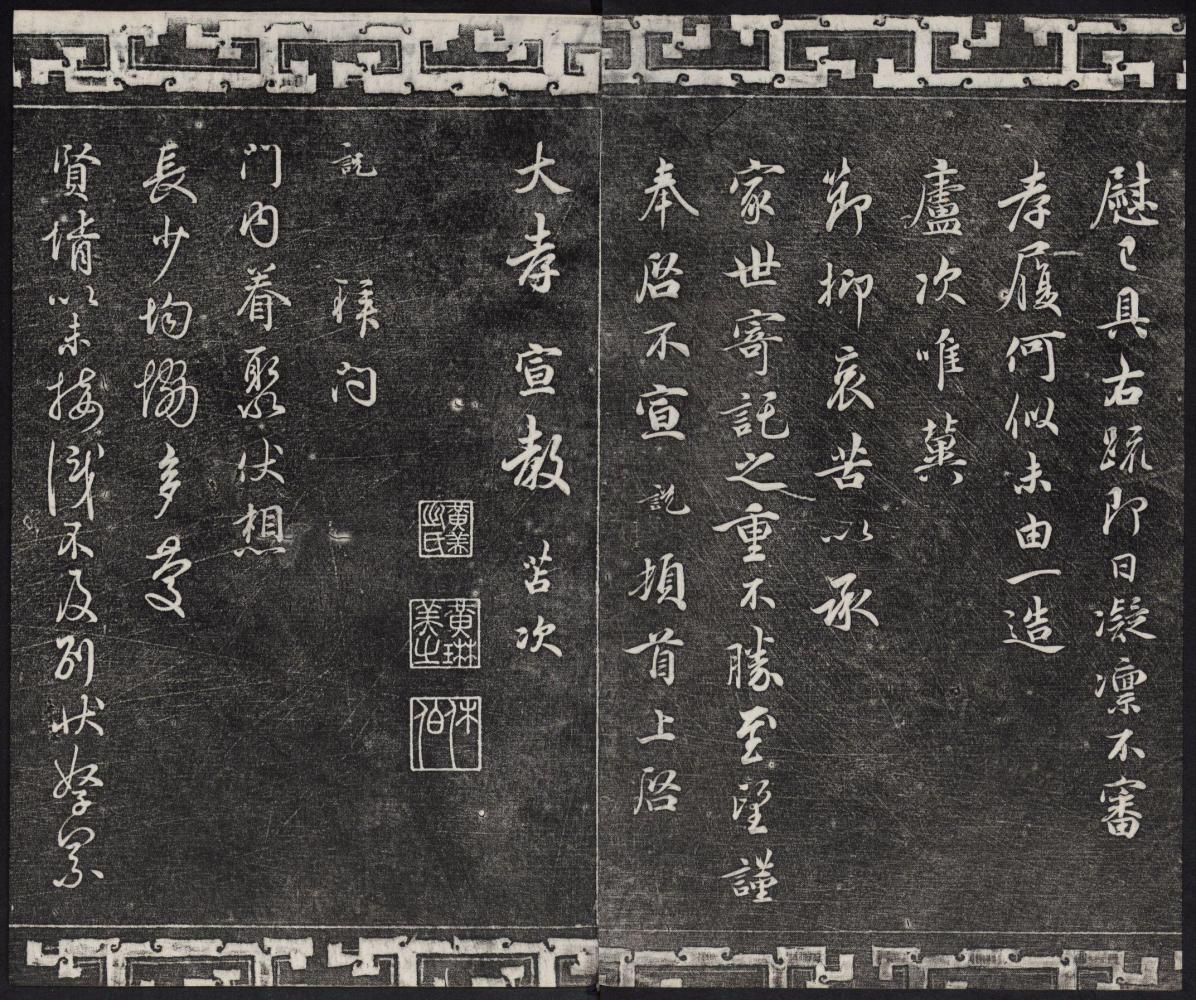 慰已具右疏即日凝凛不審
孝履何似未由一造
廬次唯冀
節抑哀苦以承
家世寄託之重不勝至望謹
奉啓不宣說頓首上啓
大孝宣教苫次
黄美之氏
黄琳美之
休伯
說祺問
門內眷聚伏想
長少均協多慶
賢壻以未接識不及別狀孥累